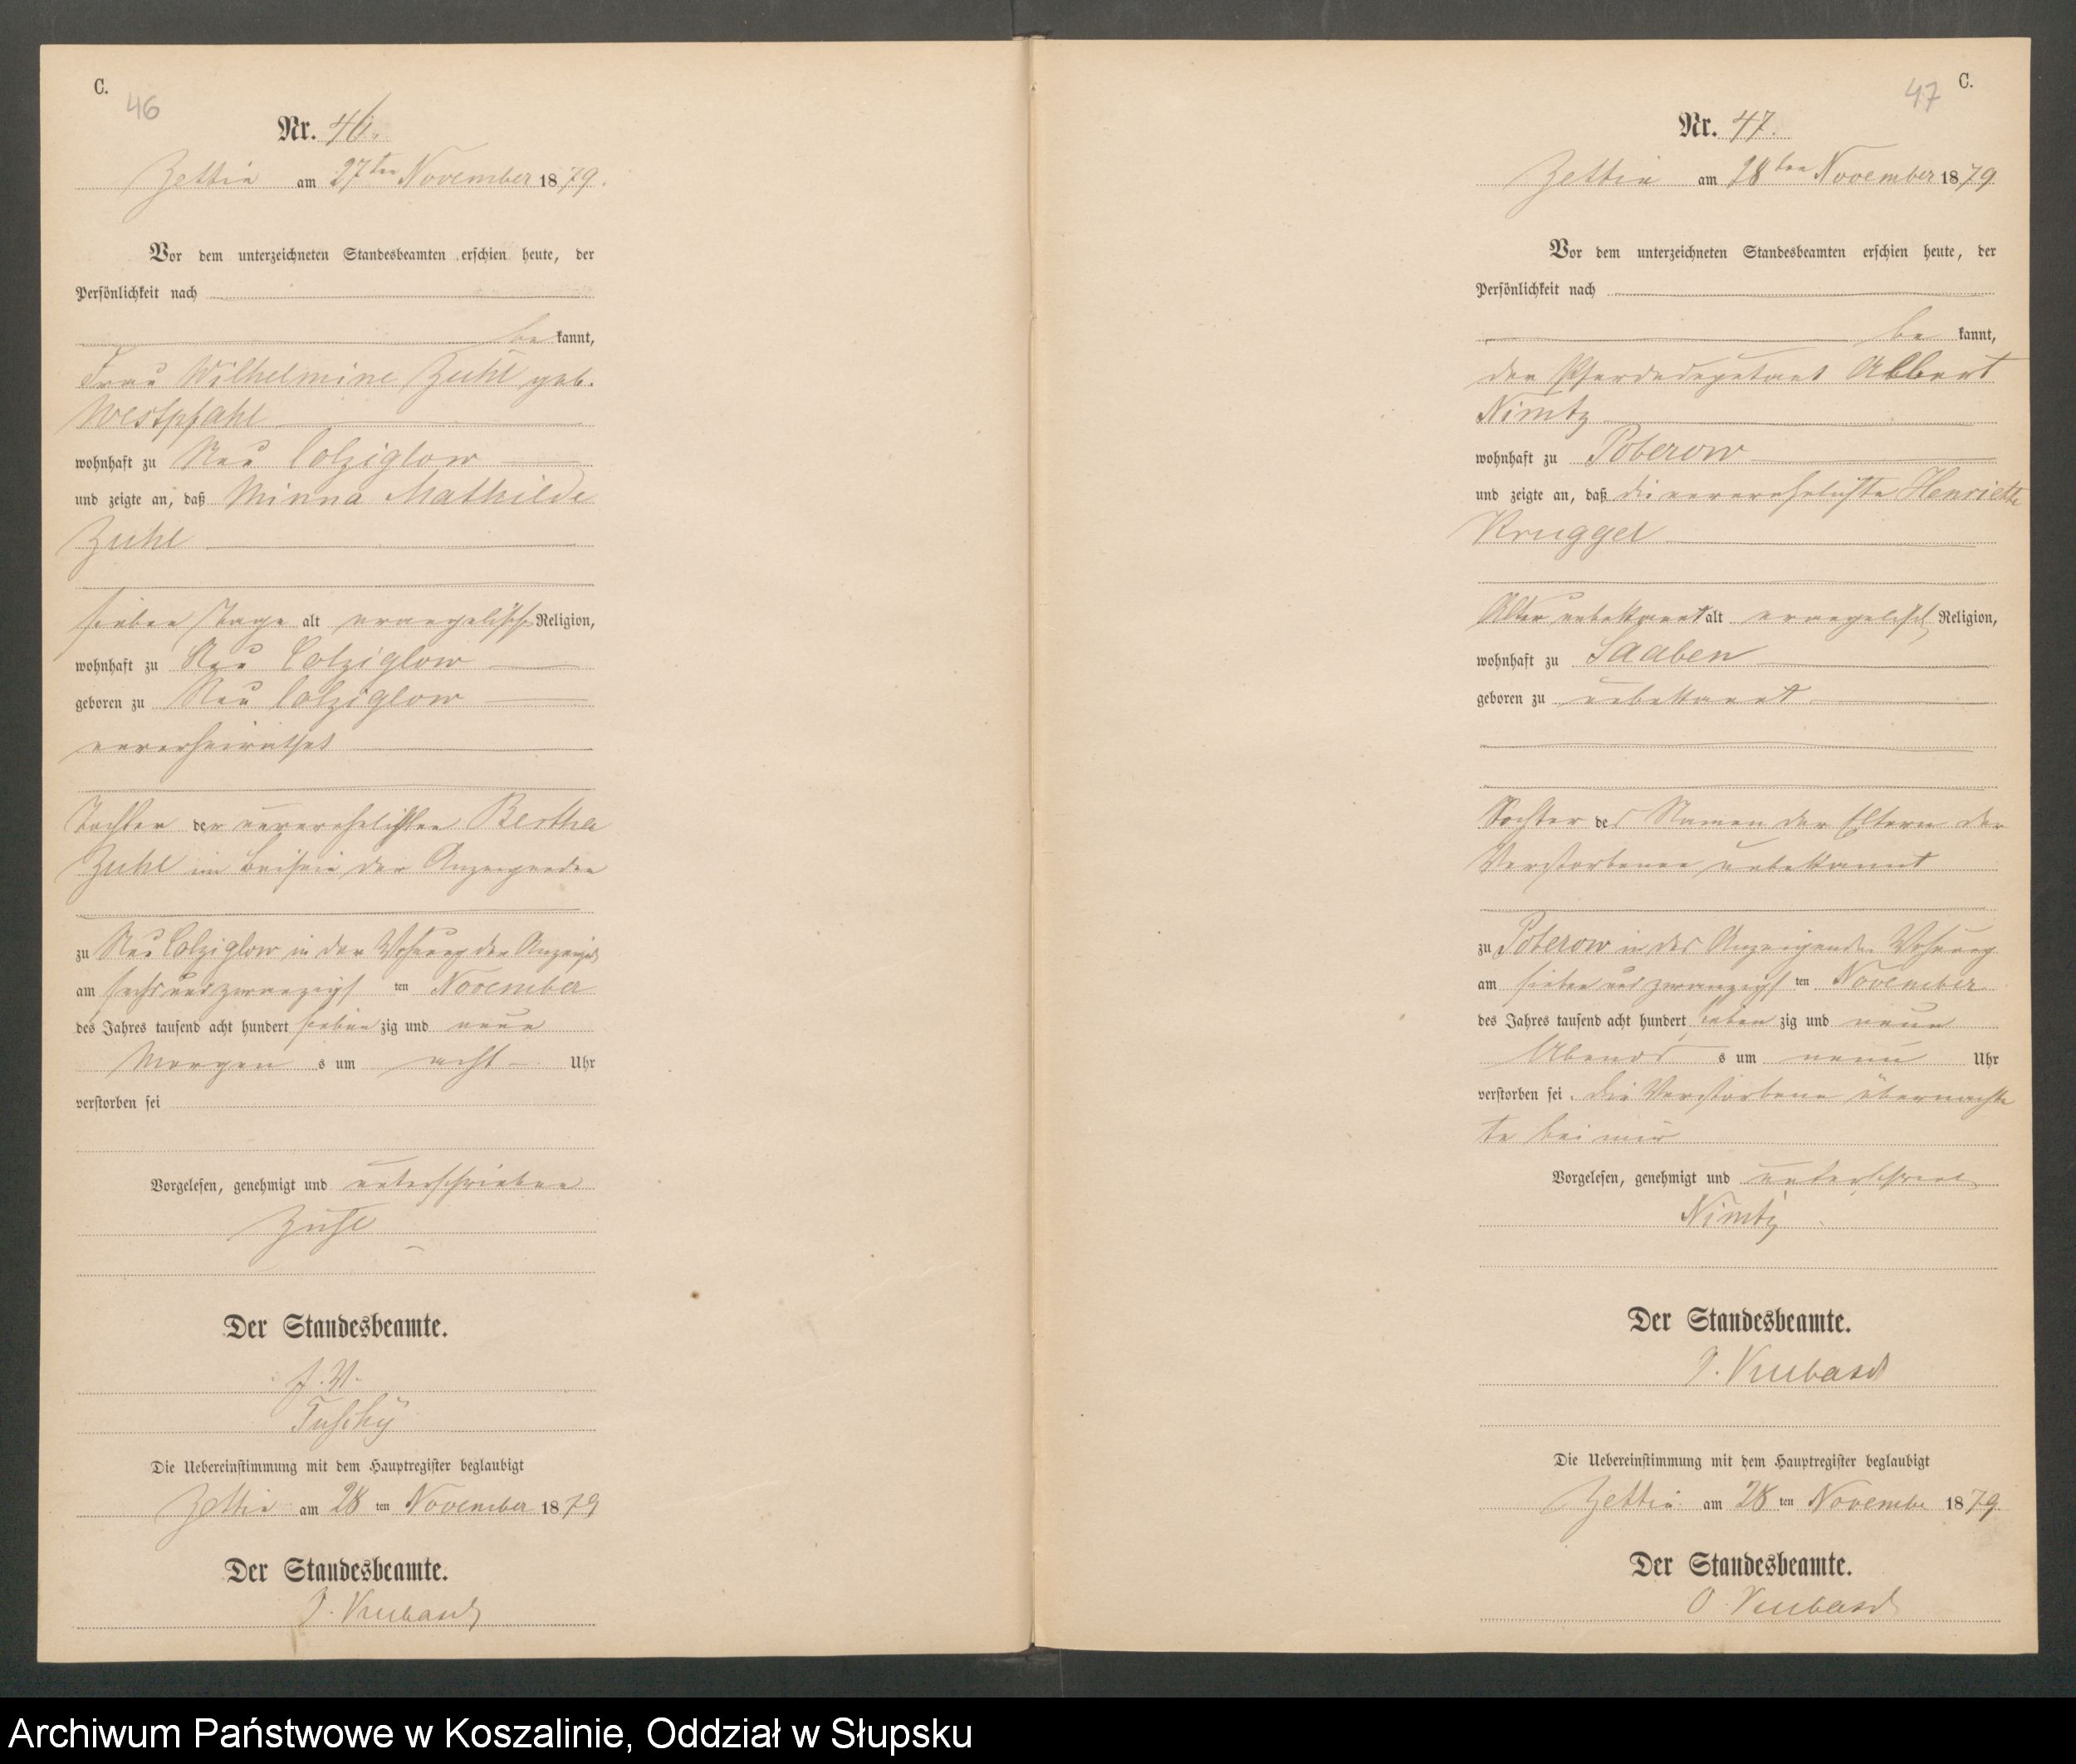 C.
46
Nr. 46.
Zettin am 27ten November 1879.
Vor dem unterzeichneten Standesbeamten erschien heute, der
Persönlichkeit nach
bekannt,
Frau Wilhelmine Zuhl geb.
Westphahl
wohnhaft zu Neu Colziglow
und zeigte an, daß Minna Mathilde
Zuhl
sieben Tage alt evangelischer Religion,
wohnhaft zu Neu Colziglow
geboren zu Neu Colziglow
unverheirathet
Tochter der unverehelichten Bertha
Zuhl im Beisein der Anzeigenden
zu Neu Colziglow in der Wohnung der
am sechs und zwanzigsten November
des Jahres tausend acht hundert siebenzig und neun
Morgens um acht Uhr
verstorben sei
Vorgelesen, genehmigt und unterschrieben
Zuhl
Der Standesbeamte.
J. V.
Die Uebereinstimmung mit dem Hauptregister beglaubigt
Zettin am 28ten November 1879
Der Standesbeamte.
C.
47
Nr. 47.
Zettin am 28ten November 1879
Vor dem unterzeichneten Standesbeamten erschien heute, der
Persönlichkeit nach
bekannt,
der Pferdedeputant Albert
Nimtz
wohnhaft zu Poberow
und zeigte an, daß die unverehelichte Henriette
Kruggel
Alter unbekannt alt evangelisch Religion,
wohnhaft zu Saaben
geboren zu unbekannt
Tochter des Namen der Eltern der
Verstorbenen unbekannt
zu Poberow in des Anzeigenden Wohnung
am sieben und zwanzigsten November
des Jahres tausend acht hundert siebenzig und neun
Abends um neun Uhr
verstorben sei. die Verstorbene übernachte
te bei mir
Vorgelesen, genehmigt und
Nimtz
Der Standesbeamte.
Die Uebereinstimmung mit dem Hauptregister beglaubigt
Zettin am 28ten Novembe 1879
Der Standesbeamte.
Archiwum Państwowe w Koszalinie, Oddział w Słupsku